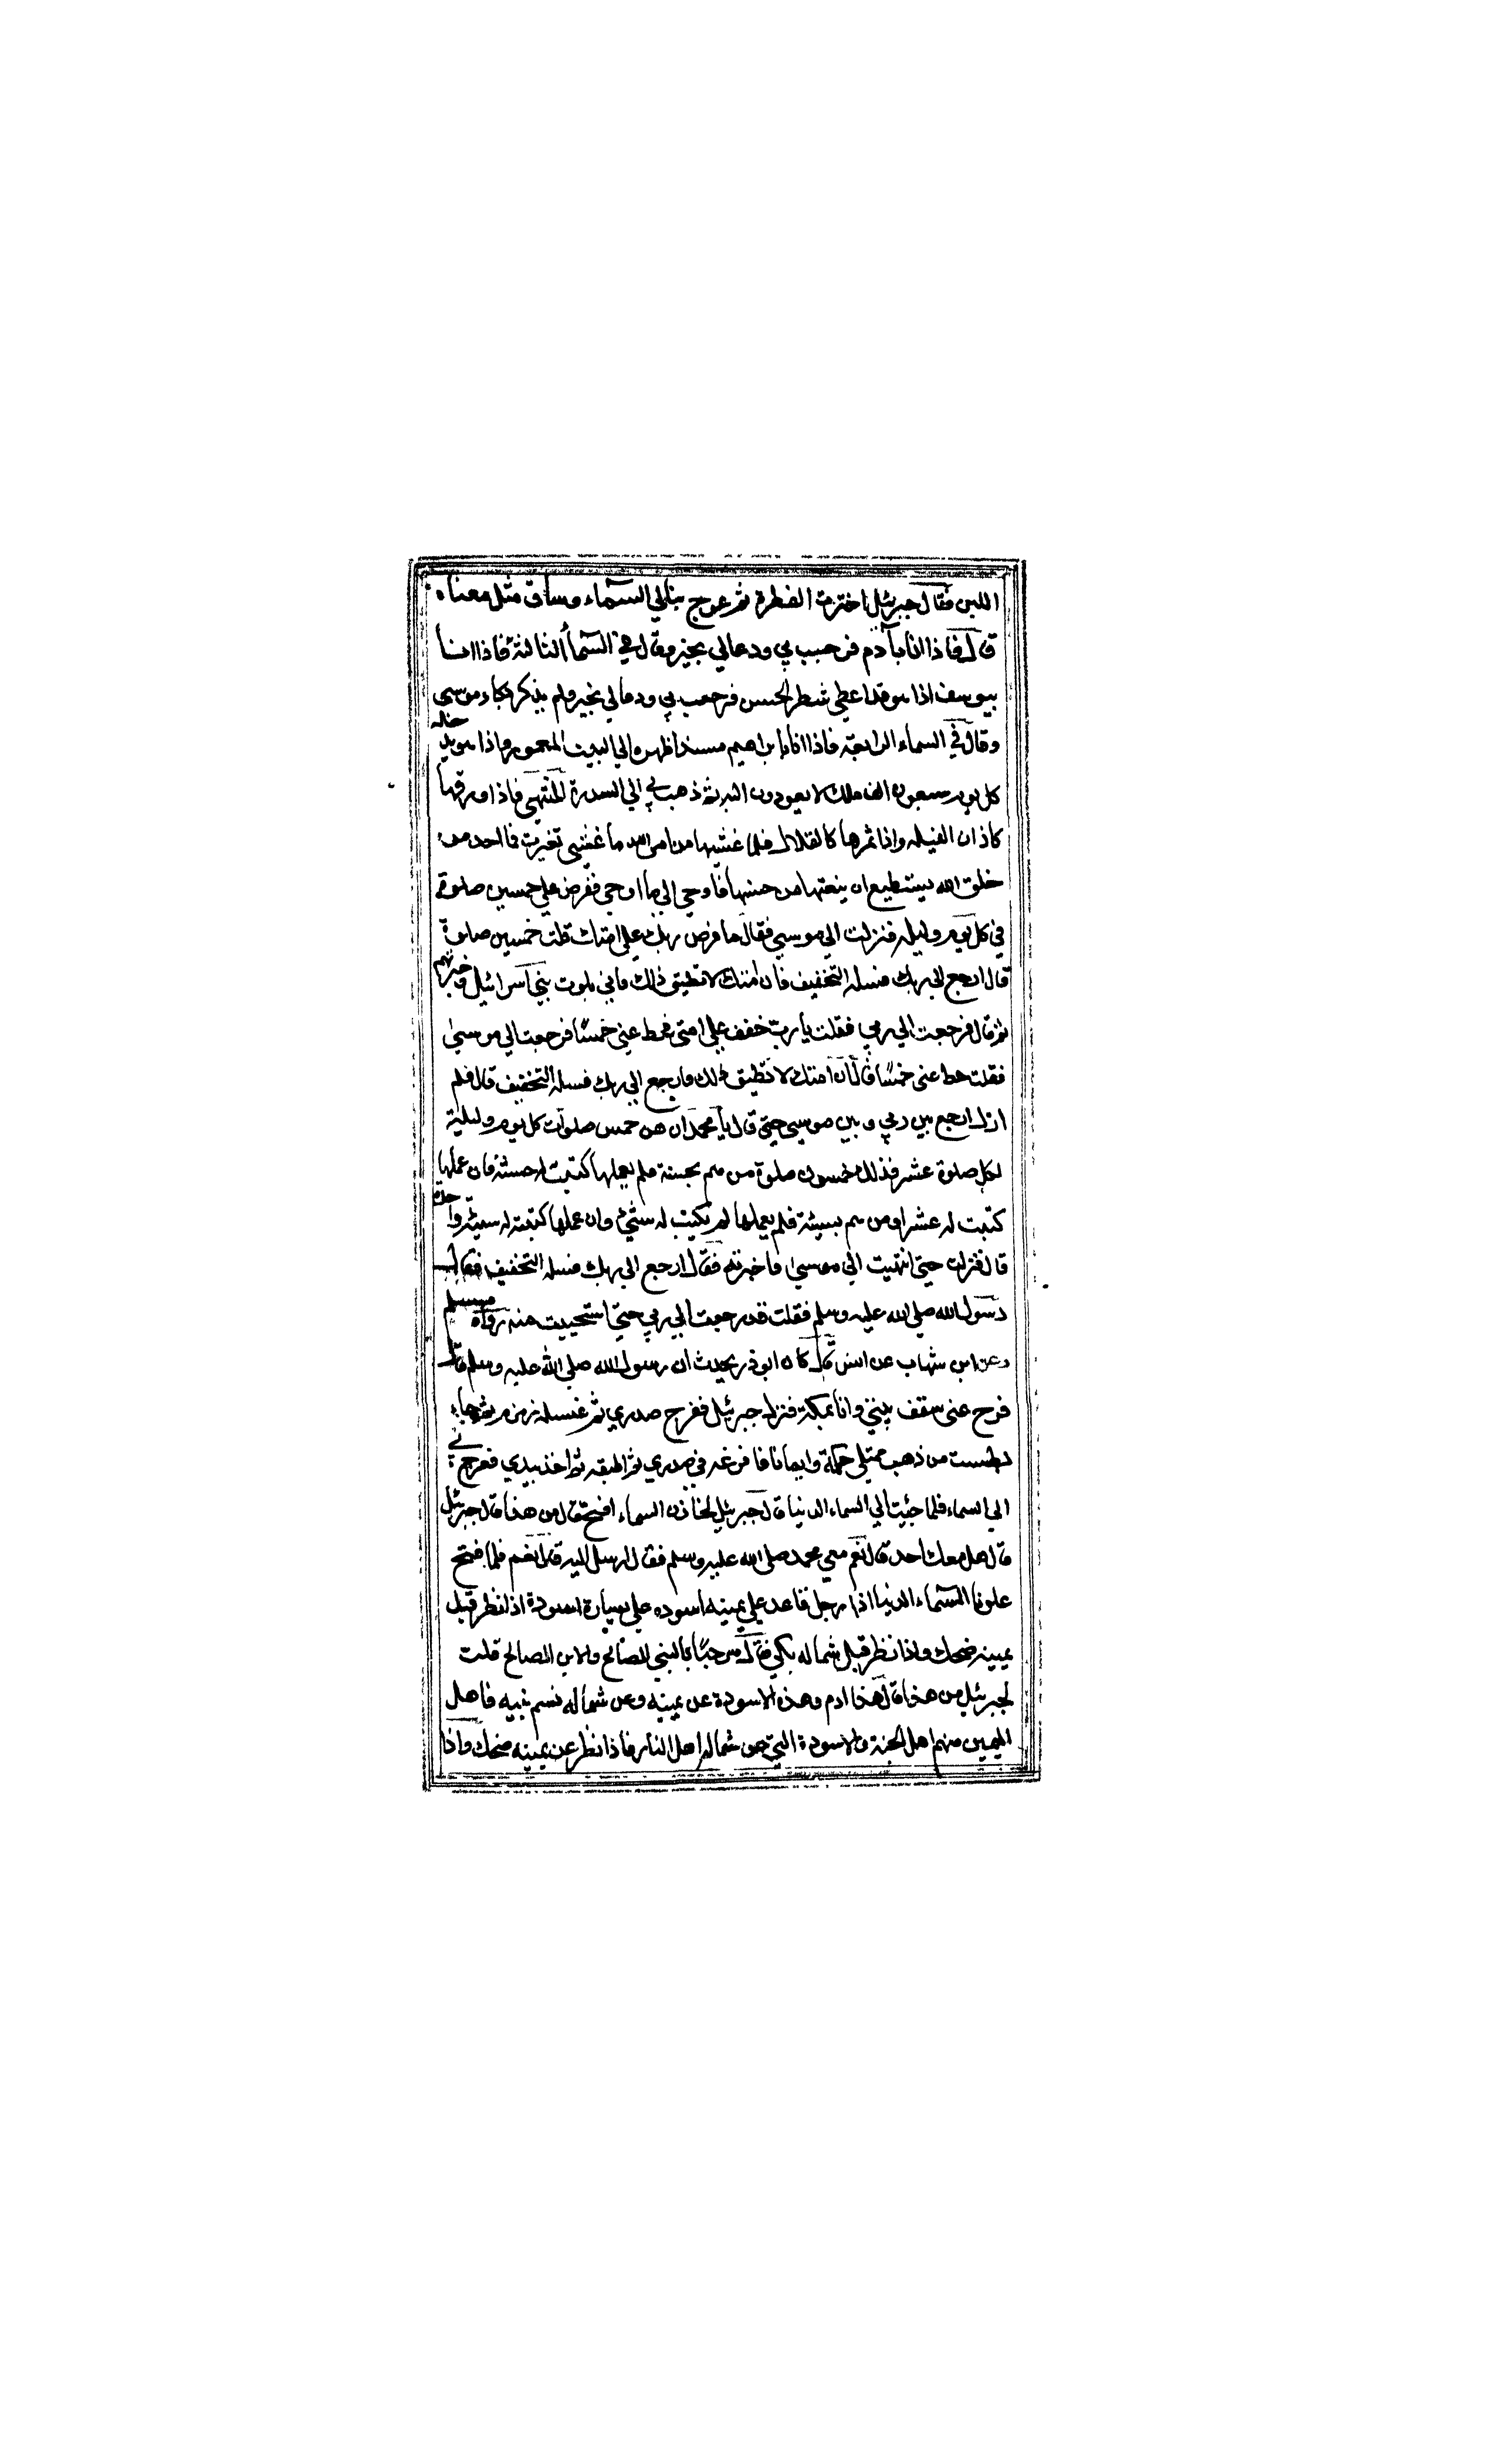 اللبن فقال جبرئيل اخترت الفطرة ثم عرج بنا الي السماء وساق مثل معناه
قال فاذا انا بآدم فرحب بي ودعا لي بخير وقال في السماء الثالثة فاذا انا
بيوسف اذا هو قد اعطي شطر الحسن فرحب بي ودعا لي بخير ولم يذكر بكاء موسي
وقال في السماء السابعة فاذا انا بابراهيم مسندا ظهره الي البيت المعمور واذا هو يدخله
كل يوم سبعون الف ملك لا يعودون اليه ثم ذهب بي الي السدرة المنتهي فاذا ورقها
كاذان الفيلة واذا ثمرها كالقلال فلما غشيها من امر الله ما غشي تغيرت فما احد من
خلق الله يستطيع ان ينعتها من حسنها فاوحي الي ما اوحي ففرض علي خمسين صلوة
في كل يوم وليلة فنزلت الي موسي فقال ما فرض ربك علي امتك قلت خمسين صلوة
قال ارجع الي ربك فسله التخفيف فان امتك لا تطيق ذلك فاني بلوت بني اسرائيل وخبرتهم
ثم قال فرجعت الي ربي فقلت يا رب خفف علي امتي فحط عني خمسًا فرجعت الي موسي
فقلت حط عني خمسًا قال ان امتك لا تطيق ذلك فارجع الي ربك فسله التخفيف قال فلم
ازل ارجع بين ربي وبين موسي حتي قال يا محمد ان هن خمس صلوات كل يوم وليلة
لكل صلوة عشر فذلك خمسون صلوة من هم بحسنة فلم يعملها كتبت له حسنة فان عملها
كتبت له عشرا ومن هم بسيئة فلم يعملها لم تكتب له شيئ وان عملها كتبت له سيئة واحدة
قال فنزلت حتي انتهيت الي موسي فاخبرته فقال ارجع الي ربك فسله التخفيف فقال
رسول الله صلي الله عليه وسلم فقلت قد رجعت الي ربي حتي استحييت منه رواه مسلم
وعن ابن شهاب عن انس قال كان ابو ذر يحدث ان رسول الله صلي الله عليه وسلم قال
فرج عني سقف بيتي وانا بمكة فنزل جبرئيل ففرج صدري ثم غسله بزمزم ثم جاء
بطست من ذهب ممتلي حكمة وايمانا فافرغه في صدري ثم اطبقه ثم اخذ بيدي فعرج بي
الي السماء فلما جئت الي السماء الدنيا قال جبرئيل لخازن السماء افتح قال من هذا قال جبرئيل
قال هل معك احد قال نعم معي محمد صلي الله عليه وسلم فقال ارسل اليه قال نعم فلما فتح
علونا السماء الدنيا اذا رجل قاعد علي يمينه اسوده علي يساره اسودة اذا نظر قبل
يمينه ضحك واذا نظر قبل شماله بكي فقال مرحبًا بالنبي الصالح والابن الصالح قلت
لجبرئيل من هذا قال هذا ادم وهذه الاسودة عن يمينه وعن شماله نسم بنيه فاهل
اليمين منهم اهل الجنة والاسودة التي عن شماله اهل النار فاذا نظر عن يمينه ضحك واذا